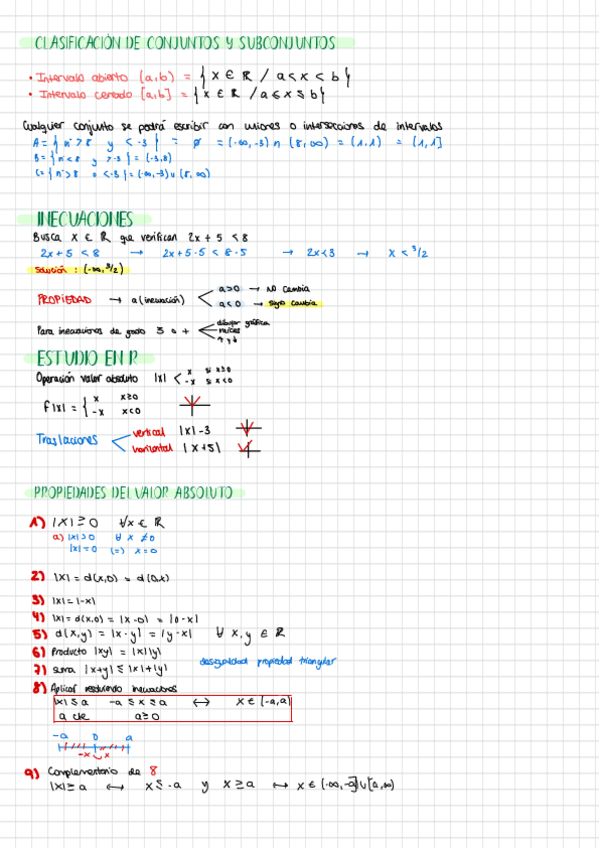 CLASIFICACIÓN DE CONJUNTOS Y SUBCONJUNTOS
• Intervalo abierto (a,b) = { x ∈ ℝ / a < x < b }
• Intervalo cerrado [a,b] = { x ∈ ℝ / a ≤ x ≤ b }
Cualquier conjunto se podrá escribir con uniones o intersecciones de intervalos
A = { n > 8 y < -3 } = ∅ = (-∞, -3) ∩ (8, ∞) = (1,1) = (1,1]
B = { n < 8 y > -3 } = (-3,8)
C = { n > 8 o < -3 } = (-∞, -3) ∪ (8, ∞)
INECUACIONES
Busca x ∈ ℝ que verifican 2x + 5 < 8
2x + 5 < 8 → 2x + 5 - 5 < 8 - 5 → 2x < 3 → x < 3/2
Solución : (-∞, 3/2)
PROPIEDAD → a (inecuación)
a > 0 → no cambia
a < 0 → signo cambia
Para inecuaciones de grado 3 o +
dibujar gráfica
raíces
↑ y ↓
ESTUDIO EN R
Operación valor absoluto |x| < x si x ≥ 0
-x si x < 0
f|x| = { x x ≥ 0
-x x < 0
Traslaciones
vertical |x| - 3
horizontal | x + 5 |
PROPIEDADES DEL VALOR ABSOLUTO
1) |x| ≥ 0 ∀x ∈ ℝ
a) |x| > 0 ∀ x ≠ 0
|x| = 0 (=) x = 0
2) |x| = d(x,0) = d(0,x)
3) |x| = |-x|
4) |x| = d(x,0) = |x - 0| = |0 - x|
5) d(x,y) = |x - y| = |y - x| ∀ x, y ∈ ℝ
6) Producto |xy| = |x| |y|
7) suma |x+y| ≤ |x| + |y| desigualdad propiedad triangular
8) Aplicar resolviendo inecuaciones
|x| ≤ a -a ≤ x ≤ a ↔ x ∈ [-a, a]
a cte a ≥ 0
-a 0 a
-x x
9) Complementario de 8
|x| ≥ a ↔ x ≤ -a y x ≥ a ↔ x ∈ (-∞, -a] ∪ [a, ∞)